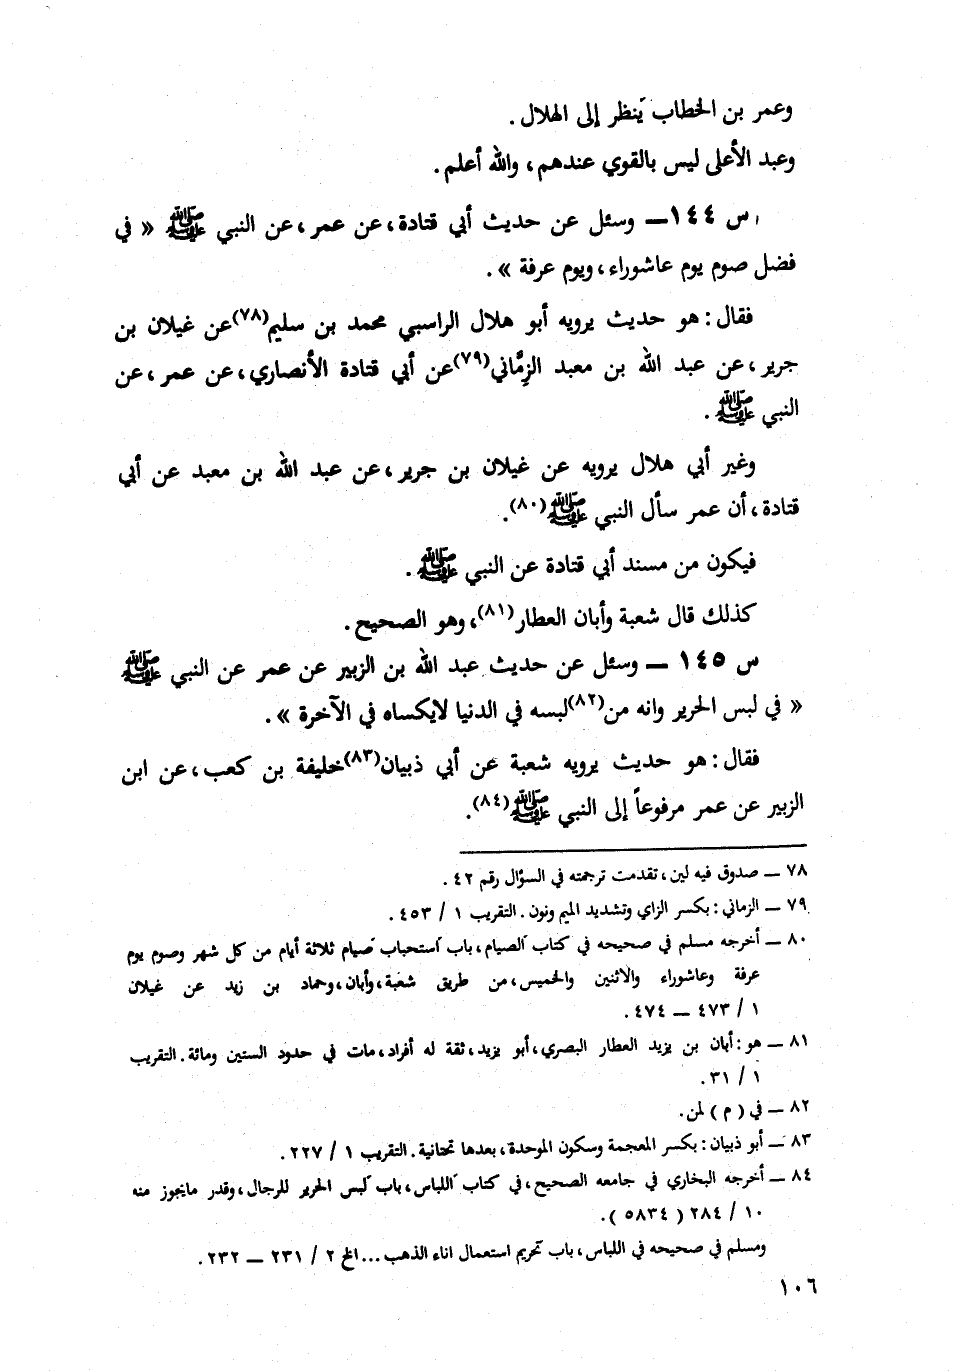 وعمر بن الخطاب يَنظر إلى الهلال .
وعبد الأعلى ليس بالقوي عندهم ، والله أعلم .
س ١٤٤ ــ وسئل عن حديث أبي قتادة ، عن عمر ، عن النبي ﷺ « في
فضل صوم يوم عاشوراء ، ويوم عرفة » .
فقال : هو حديث يرويه أبو هلال الراسبي محمد بن سليم(٧٨) عن غيلان بن
جرير ، عن عبد الله بن معبد الزِمَّاني(٧٩) عن أبي قتادة الأنصاري ، عن عمر ، عن
النبي ﷺ .
وغير أبي هلال يرويه عن غيلان بن جرير ، عن عبد الله بن معبد عن أبي
قتادة ، أن عمر سأل النبي ﷺ(٨٠) .
فيكون من مسند أبي قتادة عن النبي ﷺ .
كذلك قال شعبة وأبان العطار(٨١) ، وهو الصحيح .
س ١٤٥ ــ وسئل عن حديث عبد الله بن الزبير عن عمر عن النبي ﷺ
« في لبس الحرير وانه من(٨٢) لبسه في الدنيا لايكساه في الآخرة » .
فقال : هو حديث يرويه شعبة عن أبي ذبيان(٨٣) خليفة بن كعب ، عن ابن
الزبير عن عمر مرفوعاً إلى النبي ﷺ(٨٤) .
٧٨ ــ صدوق فيه لين ، تقدمت ترجمته في السؤال رقم ٤٢ .
٧٩ ــ الزماني : بكسر الزاي وتشديد الميم ونون . التقريب ١ / ٤٥٣ .
٨٠ ــ أخرجه مسلم في صحيحه في كتاب الصيام ، باب استحباب صيام ثلاثة أيام من كل شهر وصوم يوم
عرفة وعاشوراء والاثنين والخميس ، من طريق شعبة ، وأبان ، وحماد بن زيد عن غيلان
١ / ٤٧٣ ــ ٤٧٤ .
٨١ ــ هو : أبان بن يزيد العطار البصري ، أبو يزيد ، ثقة له أفراد ، مات في حدود الستين ومائة . التقريب
١ / ٣١ .
٨٢ ــ في ( م ) لمن .
٨٣ ــ أبو ذبيان : بكسر المعجمة وسكون الموحدة ، بعدها تحتانية . التقريب ١ / ٢٢٧ .
٨٤ ــ أخرجه البخاري في جامعه الصحيح ، في كتاب اللباس ، باب لبس الحرير للرجال ، وقدر مايجوز منه
١٠ / ٢٨٤ ( ٥٨٣٤ ) .
ومسلم في صحيحه في اللباس ، باب تحريم استعمال اناء الذهب ... الخ ٢ / ٢٣١ ــ ٢٣٢ .
١٠٦